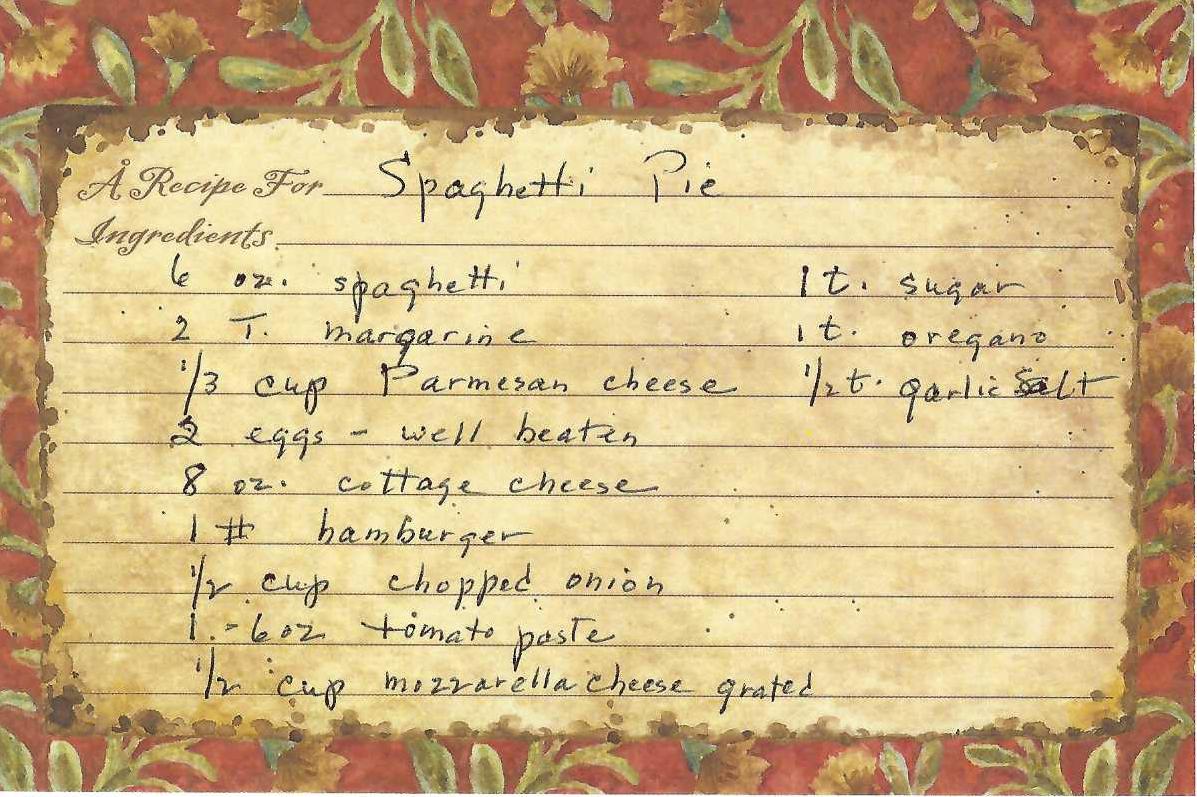 A Recipe For Spaghetti Pie
Ingredients
6 oz. spaghetti
2 T. margarine
1/3 cup Parmesan cheese
2 eggs - well beaten
8 oz. cottage cheese
1 # hamburger
1/2 cup chopped onion
1 - 6 oz tomato paste
1/2 cup mozzarella cheese grated
1 t. sugar
1 t. oregano
1/2 t. garlic salt